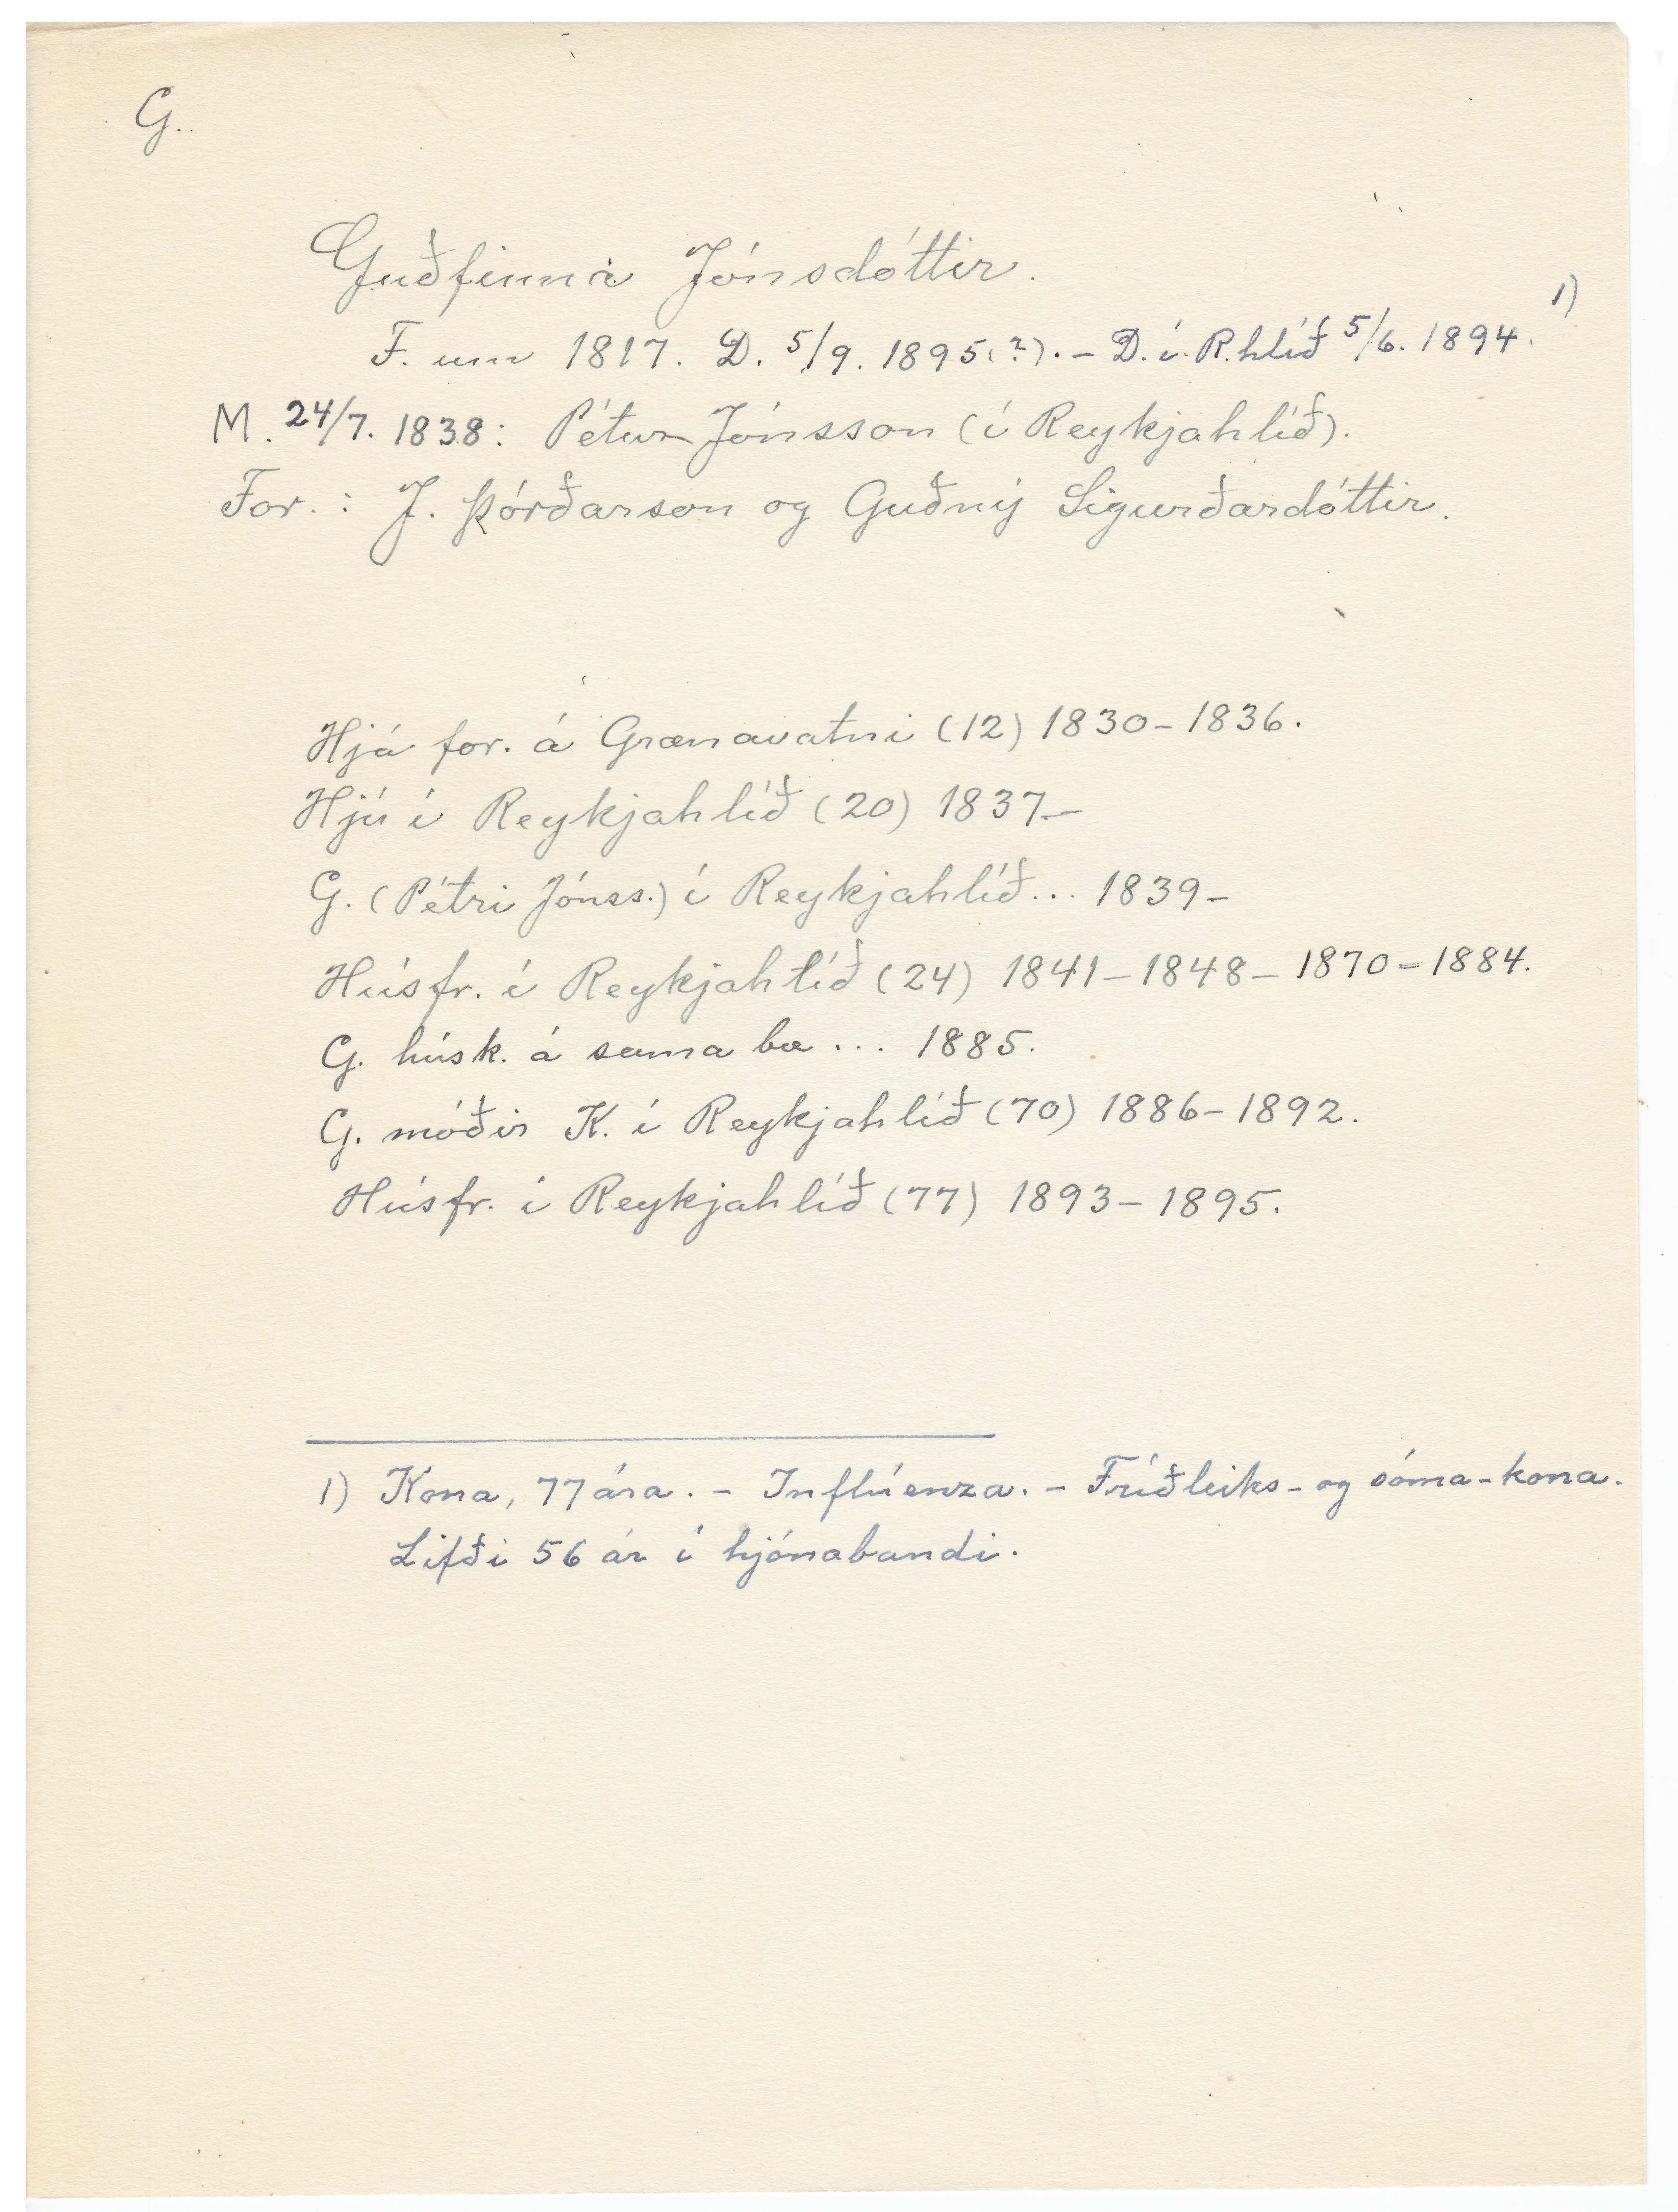 G.
Guðfinna Jónsdóttir.
F. um 1817. D. 5/9. 1895(?). - D. í R.hlíð 5/6. 1894. 1)
M. 24/7. 1838: Pétur Jónsson (í Reykjahlíð).
For.: J. Þórðarson og Guðný Sigurðardóttir.
Hjá for. á Grænavatni (12) 1830-1836.
Hjú í Reykjahlíð (20) 1837-
G. (Pétri Jónss.) í Reykjahlíð... 1839-
Húsfr. í Reykjahlíð (24) 1841-1848-1870-1884.
G. húsk. á sama bæ... 1885.
G. móðir K. í Reykjahlíð (70) 1886-1892.
Húsfr. í Reykjahlíð (77) 1893-1895.
1) Kona, 77 ára. - Inflúenza. - Fríðleiks- og sóma-kona.
Lifði 56 ár í hjónabandi.